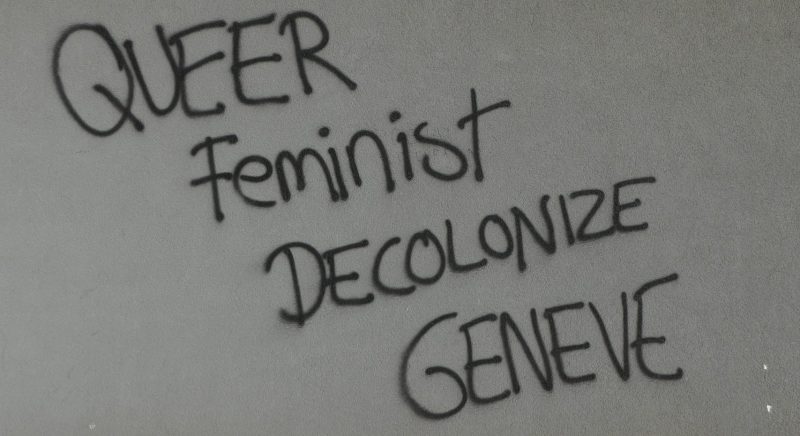 QUEER
Feminist
DECOLONIZE
GENEVE